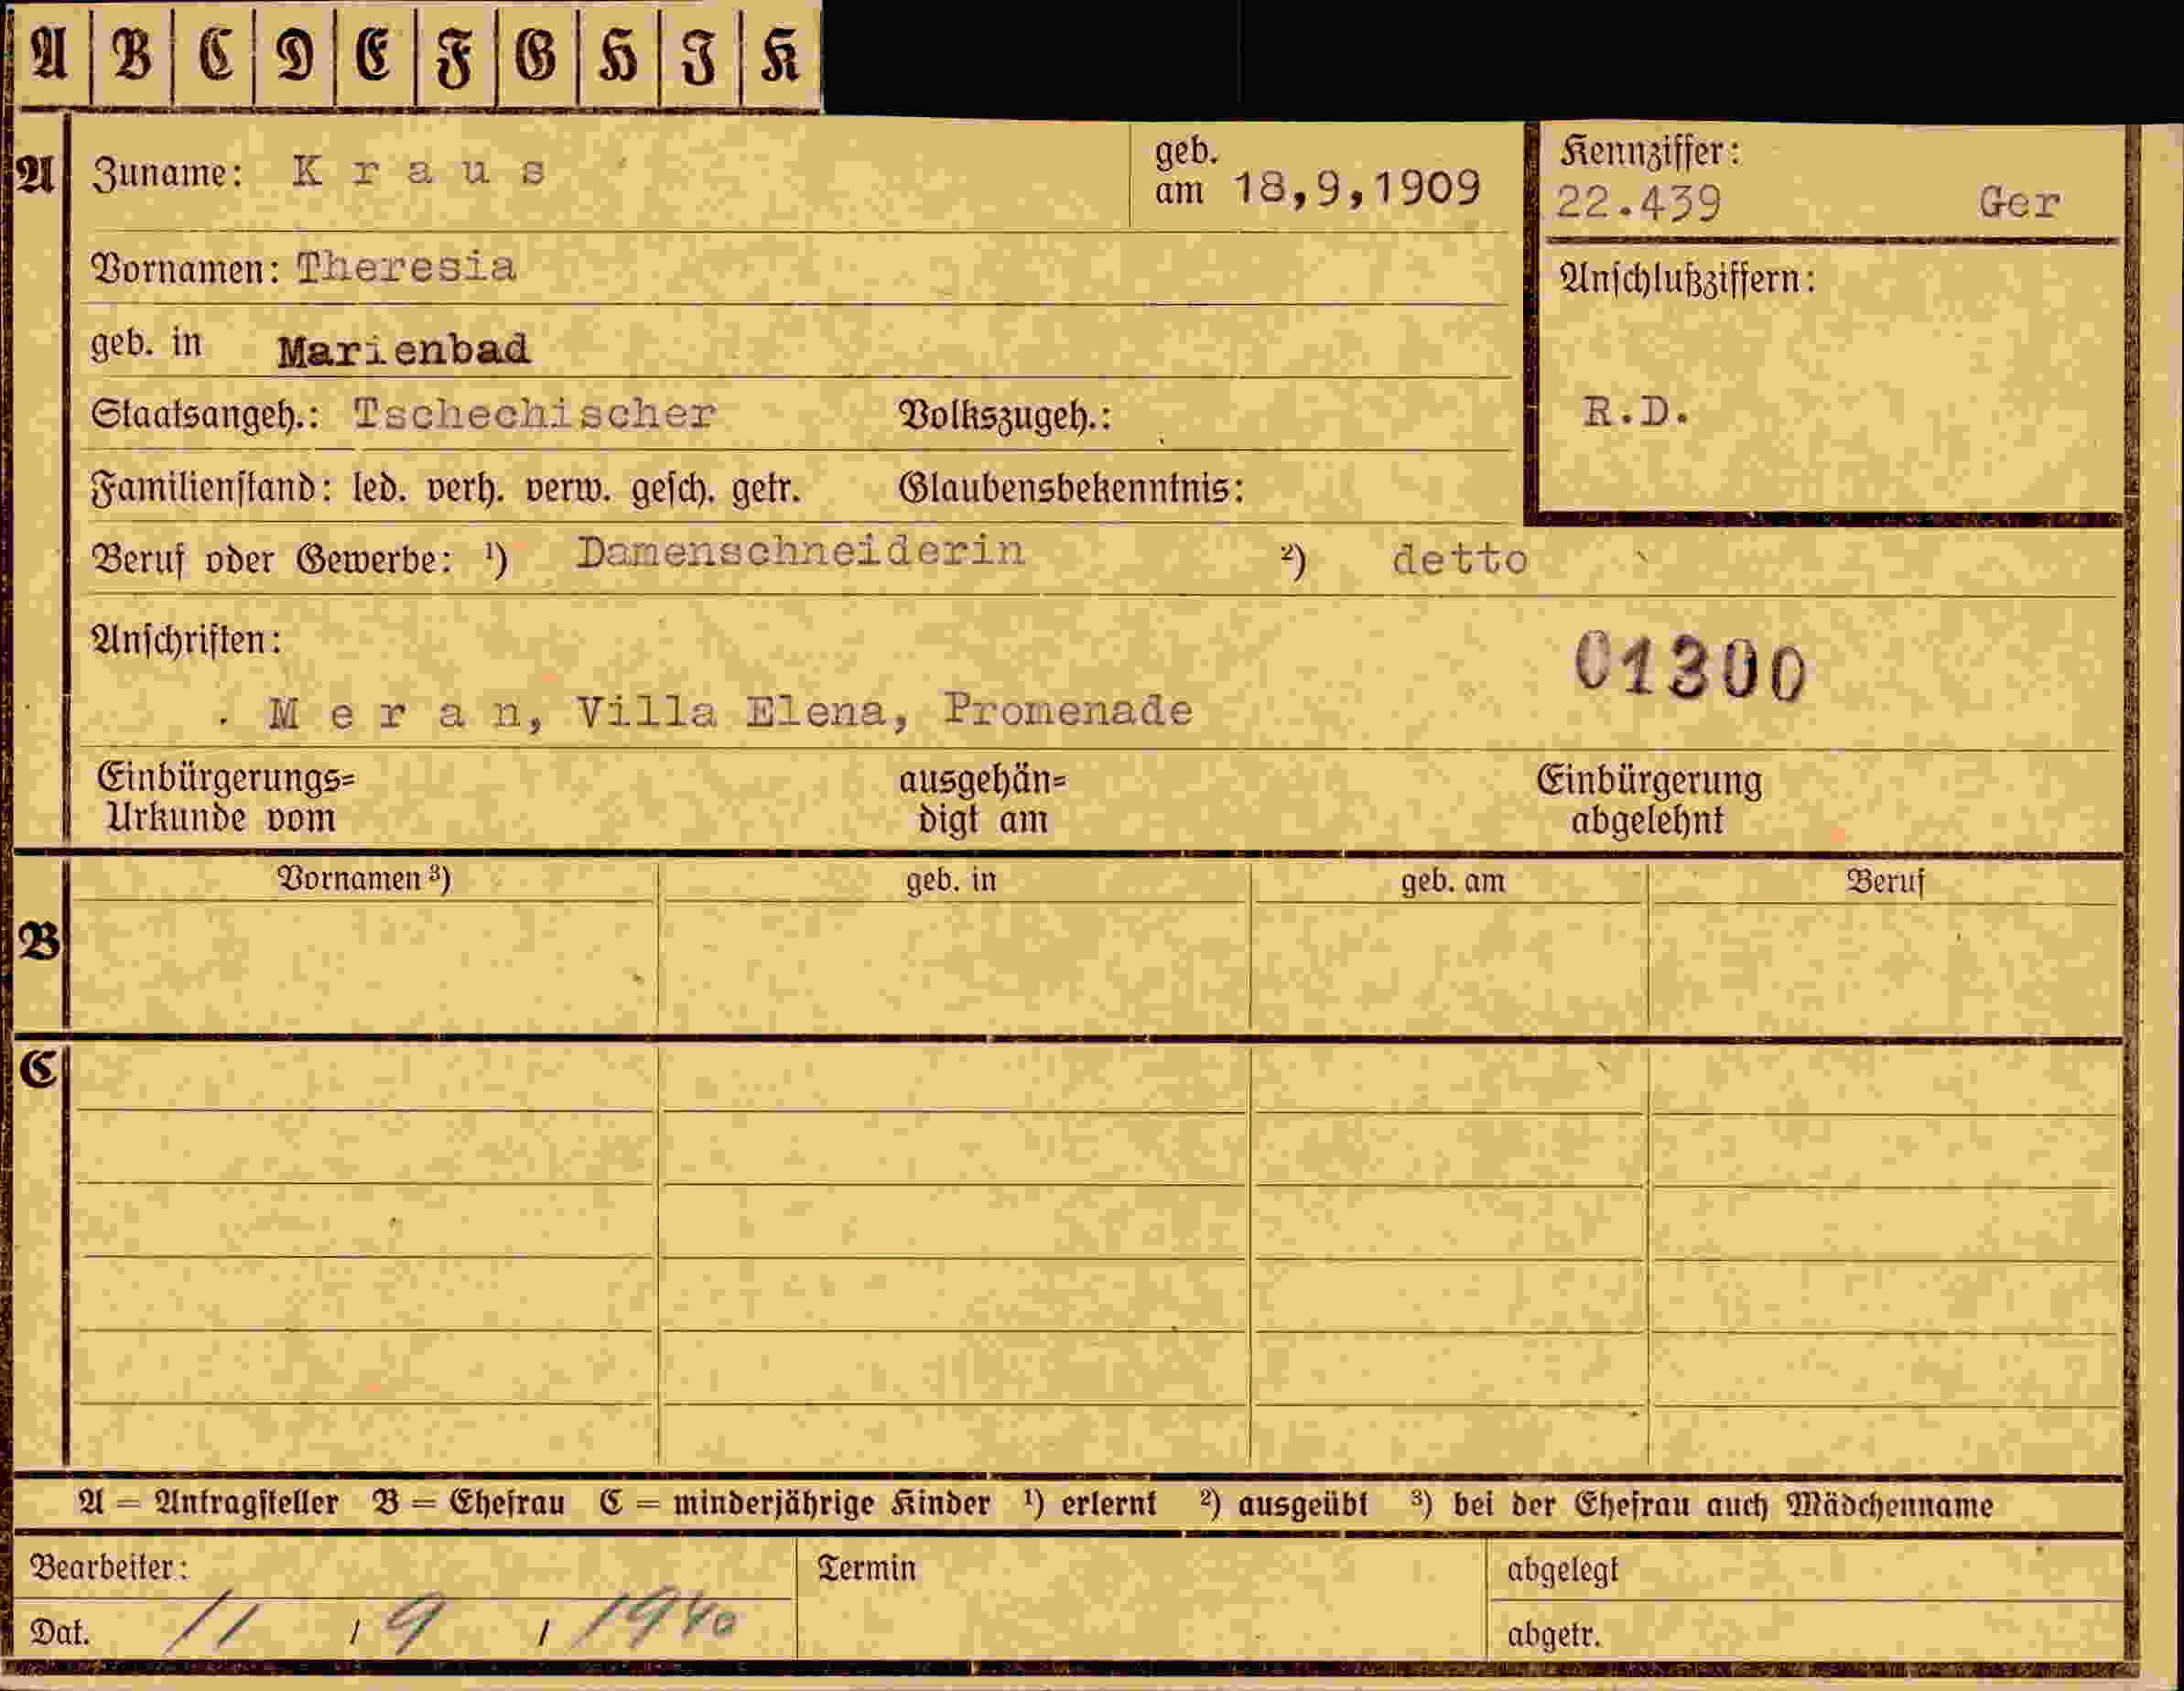 A B C D E F G H J K
A Zuname: K r a u s geb. am 18,9,1909
Kennziffer:
22.439 Ger
Vornamen: Theresia
Anschlußziffern:
geb. in Marienbad
Staatsangeh.: Tschechischer Volkszugeh.:
R.D.
Familienstand: led. verh. verw. gesch. getr. Glaubensbekenntnis:
Beruf oder Gewerbe: ¹) Damenschneiderin ²) detto
Anschriften:
01300
. M e r a n, Villa Elena, Promenade
Einbürgerungs= ausgehän= Einbürgerung
Urkunde vom digt am abgelehnt
Vornamen ³) geb. in geb. am Beruf
B
C
A = Antragsteller B = Ehefrau C = minderjährige Kinder ¹) erlernt ²) ausgeübt ³) bei der Ehefrau auch Mädchenname
Bearbeiter: Termin abgelegt
Dat. 11 / 9 / 1940 abgetr.